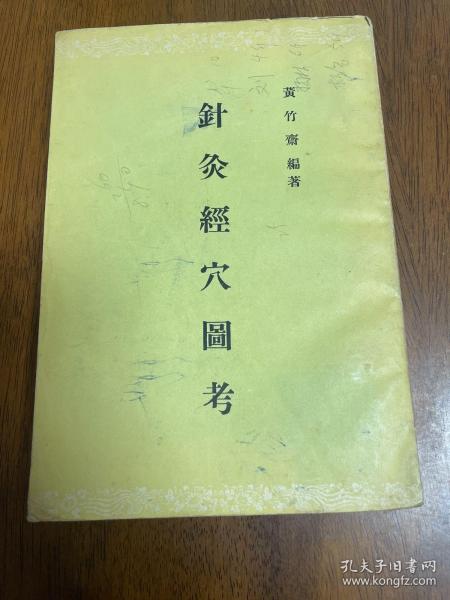 黃竹齋編著
針灸經穴圖考
孔夫子旧书网
www.kongfz.com